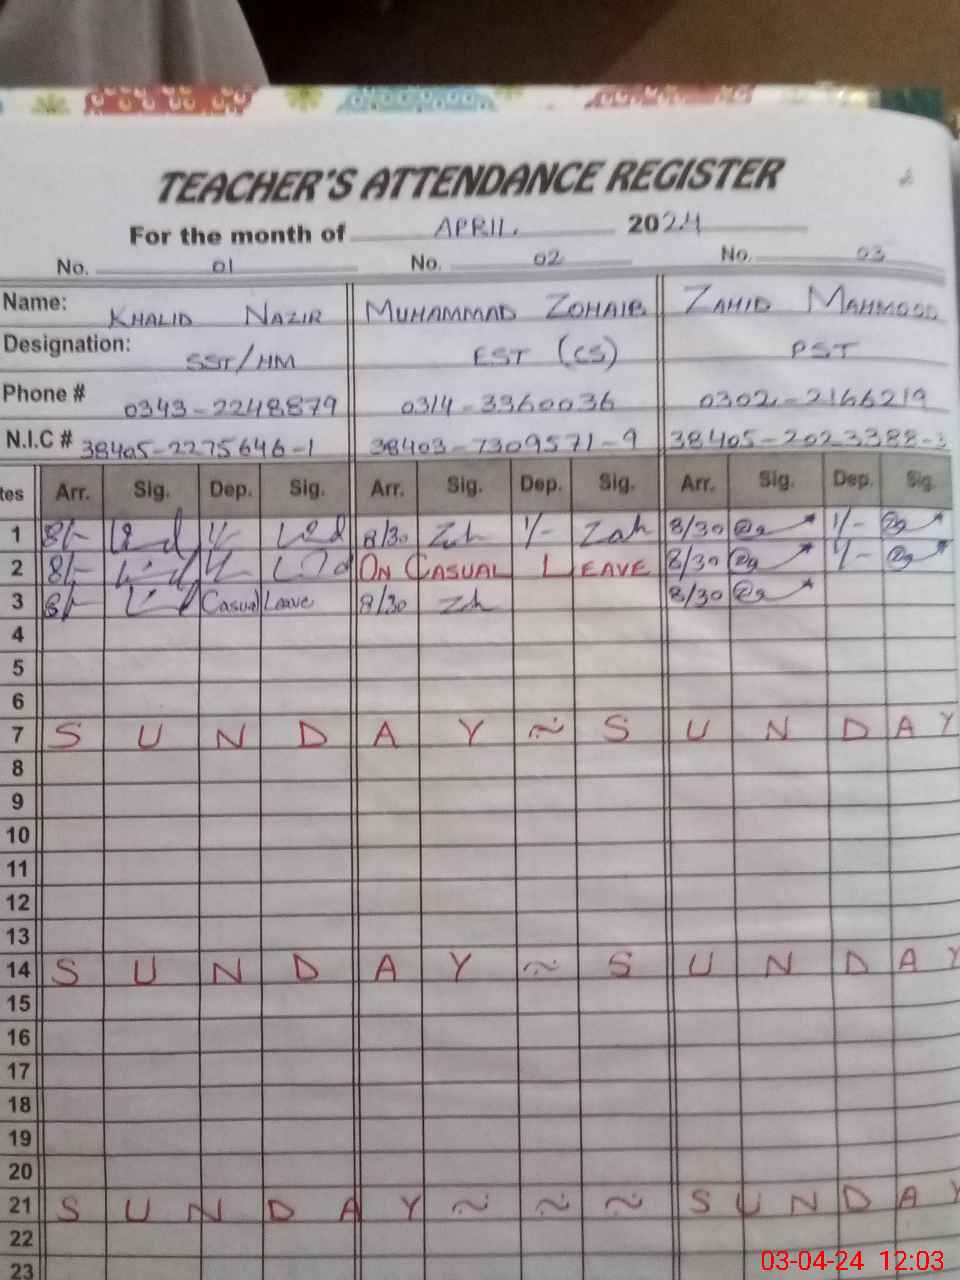 TEACHER'S ATTENDANCE REGISTER
For the month of APRIL. 2024
No. 01 No. 02 No. 03
Name: KHALID NAZIR MUHAMMAD ZOHAIB ZAHID MAHMOOD
Designation: SST/HM EST (CS) PST
Phone # 0343-2248879 0314-3360036 0302-2166219
N.I.C # 38405-2275646-1 38403-7309571-9 38405-2023388-3
tes Arr. Sig. Dep. Sig. Arr. Sig. Dep. Sig. Arr. Sig. Dep. Sig.
1 8/- 1/- 8/30 1/- 8/30 1/-
2 8/- 1/- ON CASUAL LEAVE 8/30 1/-
3 8/- Casual Leave 8/30 8/30
4
5
6
7 S U N D A Y ~ S U N D A Y
8
9
10
11
12
13
14 S U N D A Y ~ S U N D A Y
15
16
17
18
19
20
21 S U N D A Y ~ ~ ~ S U N D A Y
22
23
03-04-24 12:03